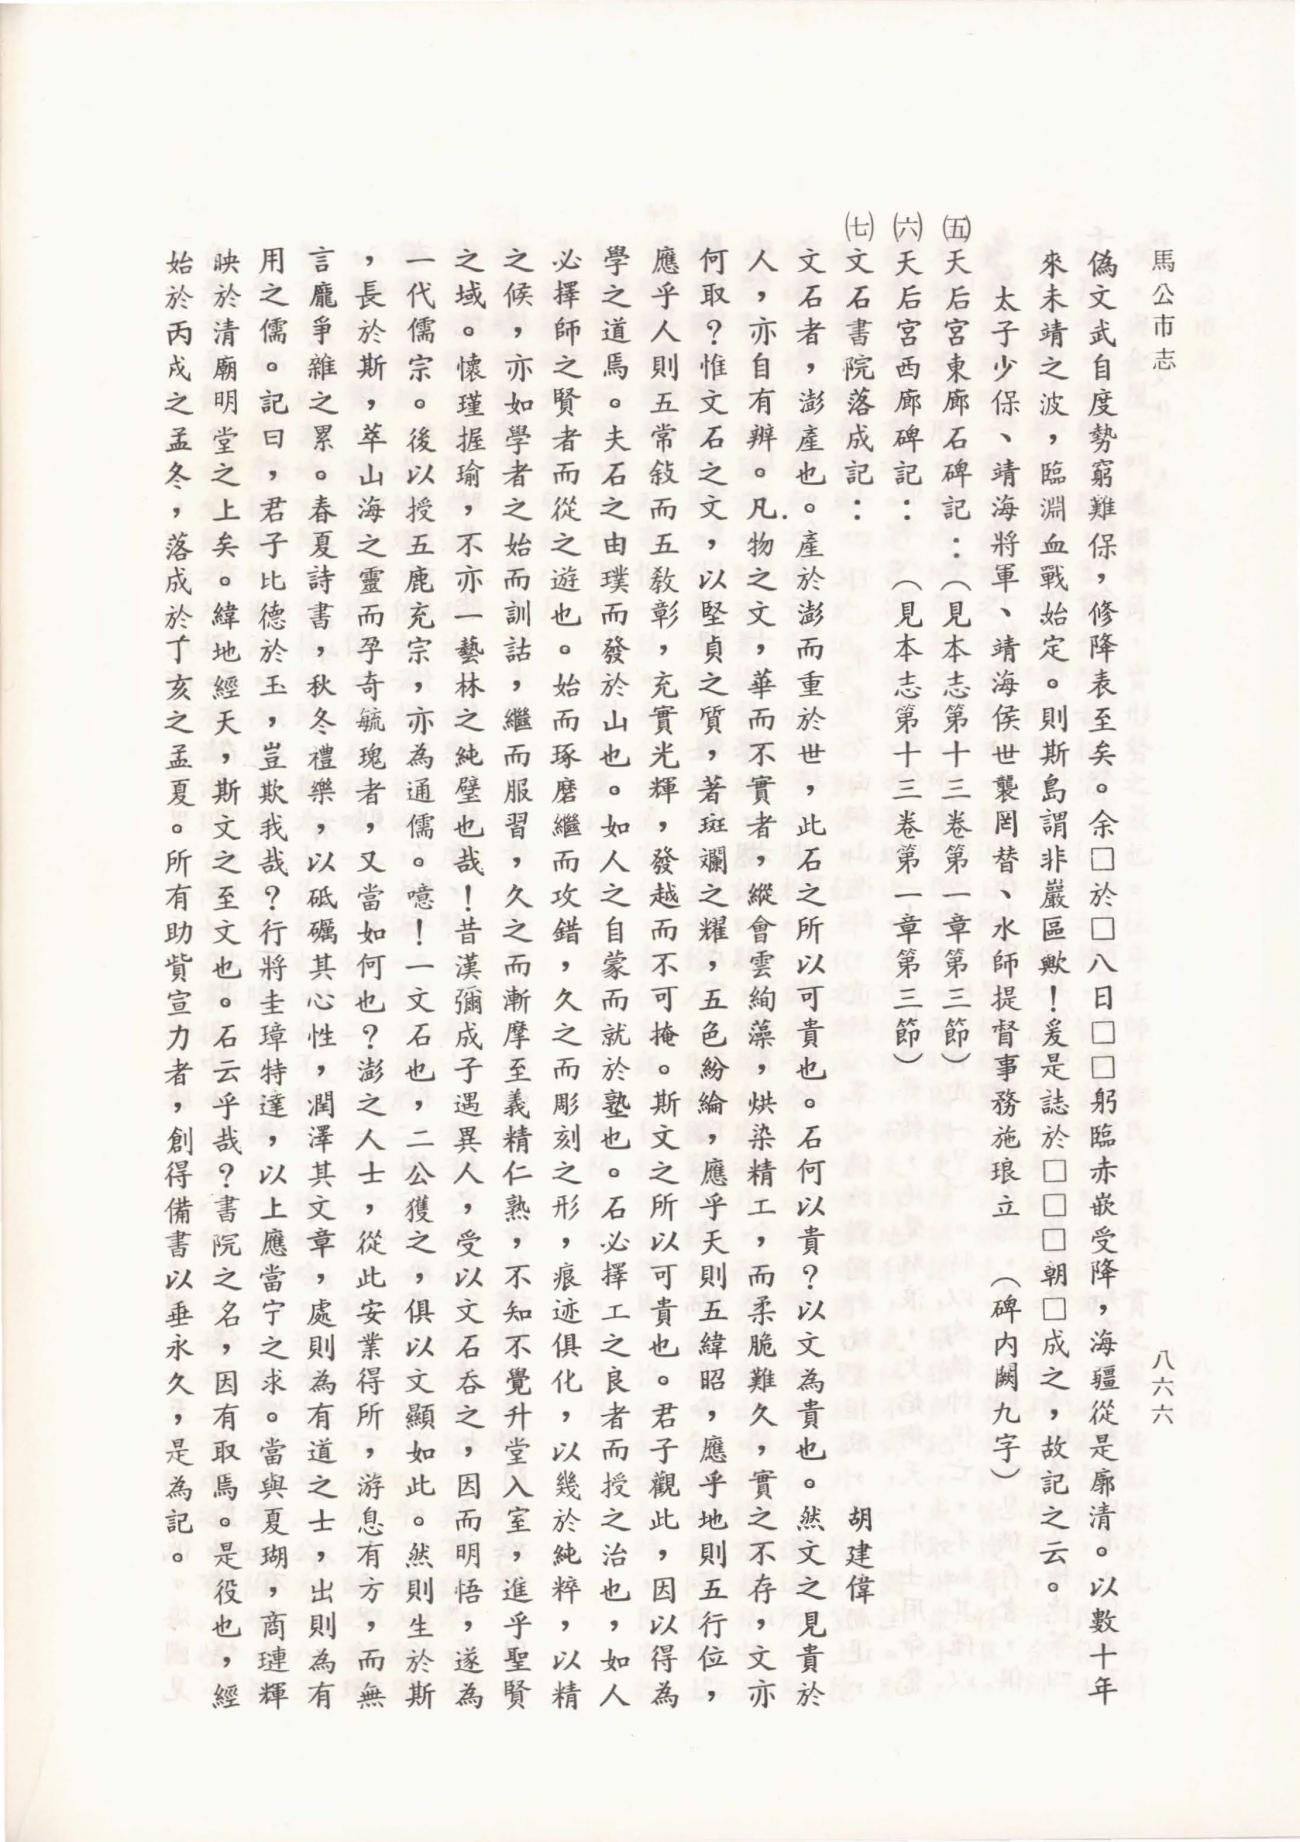 馬公市志
八六六
偽文武自度勢窮難保，修降表至矣。余□於□八日□□躬臨赤嵌受降，海疆從是廓清。以數十年
來未靖之波，臨淵血戰始定。則斯島謂非嚴區歟！爰是誌於□□□朝□成之，故記之云。
太子少保、靖海將軍、靖海侯世襲罔替、水師提督事務施琅立　（碑內闕九字）
㈤天后宮東廊石碑記：（見本志第十三卷第一章第三節）
㈥天后宮西廊碑記：（見本志第十三卷第一章第三節）
㈦文石書院落成記：　胡建偉
文石者，澎產也。產於澎而重於世，此石之所以可貴也。石何以貴？以文為貴也。然文之見貴於
人，亦自有辨。凡物之文，華而不實者，縱會雲絢藻，烘染精工，而柔脆難久，實之不存，文亦
何取？惟文石之文，以堅貞之質，著斑斕之耀，五色紛綸，應乎天則五緯昭，應乎地則五行位，
應乎人則五常敍而五教彰，充實光輝，發越而不可掩。斯文之所以可貴也。君子觀此，因以得為
學之道焉。夫石之由璞而發於山也。如人之自蒙而就於塾也。石必擇工之良者而授之治也，如人
必擇師之賢者而從之遊也。始而琢磨繼而攻錯，久之而彫刻之形，痕迹俱化，以幾於純粹，以精
之候，亦如學者之始而訓詁，繼而服習，久之而漸摩至義精仁熟，不知不覺升堂入室，進乎聖賢
之域。懷瑾握瑜，不亦一藝林之純璧也哉！昔漢彌成子遇異人，受以文石吞之，因而明悟，遂為
一代儒宗。後以授五鹿充宗，亦為通儒。噫！一文石也，二公獲之，俱以文顯如此。然則生於斯
，長於斯，萃山海之靈而孕奇毓瑰者，又當如何也？澎之人士，從此安業得所，游息有方，而無
言龐爭雜之累。春夏詩書，秋冬禮樂，以砥礪其心性，潤澤其文章，處則為有道之士，出則為有
用之儒。記曰，君子比德於玉，豈欺我哉？行將圭璋特達，以上應當宁之求。當與夏瑚，商璉輝
映於清廟明堂之上矣。緯地經天，斯文之至文也。石云乎哉？書院之名，因有取焉。是役也，經
始於丙戌之孟冬，落成於丁亥之孟夏。所有助貲宣力者，創得備書以垂永久，是為記。